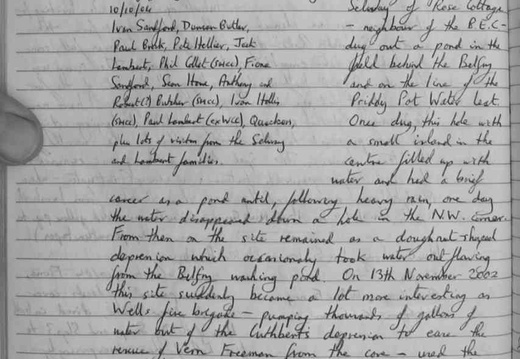 10/10/04
Ivan Sandford, Duncan Butler,
Paul Brock, Pete Hellier, Jack
Lambert, Phil Collet (SMCC) Fiona
Sandford, Sean Howe, Anthony and
Robert(?) Butcher (SMCC), Ivan Hollis
(SMCC), Paul Lambert (ex WCC), Quackers,
plus lots of visitors from the Selway
and Lambert families.
Selway of Rose Cottage
- neighbour of the B.E.C. -
dug out a pond in the
field behind the Belfry
and on the line of the
Priddy Pot Water leat.
Once dug, this hole with
a small island in the
centre filled up with
water and had a brief
career as a pond until, following heavy rain, one day
the water disappeared down a hole in the N.W. corner.
From then on the site remained as a doughnut-shaped
depression which occasionaly took water outflowing
from the Belfry washing pond. On 13th November 2002
this site suddenly became a lot more interesting as
Wells fire brigade - pumping thousands of gallons of
water out of the Cuthbert's depression to ease the
rescue of Vern Freeman from the cave used the